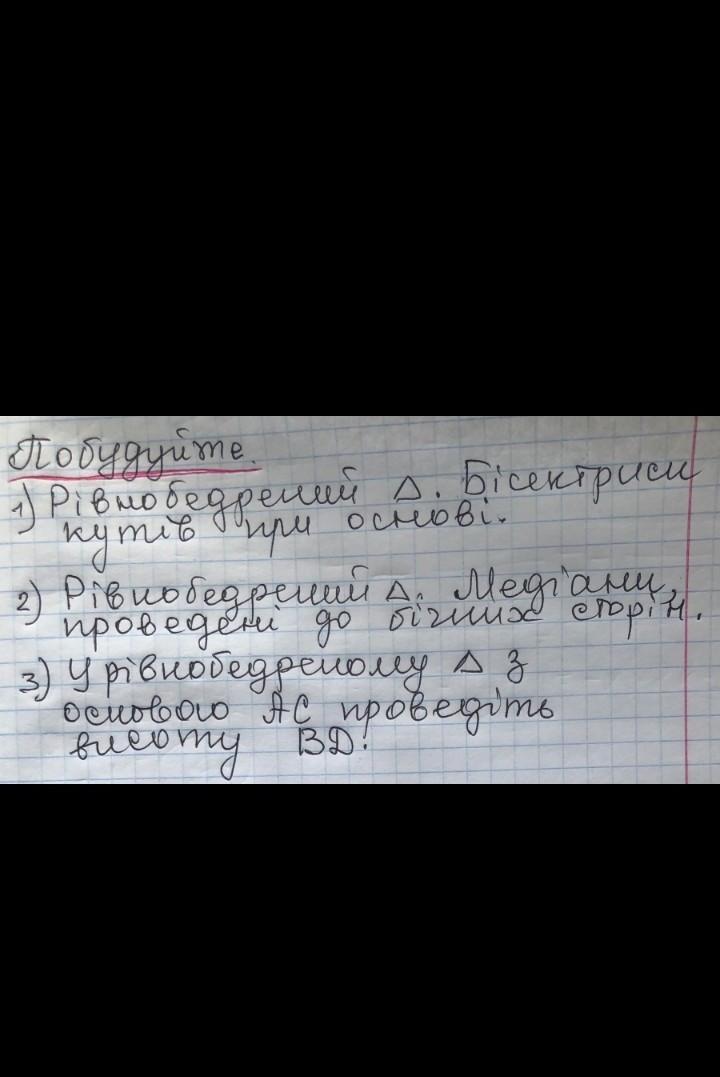 Побудуйте.
1) Рівнобедрений Δ. Бісектриси
кутів при основі.
2) Рівнобедрений Δ. Медіани,
проведені до бічних сторін.
3) У рівнобедреному Δ з
основою АС проведіть
висоту ВД.